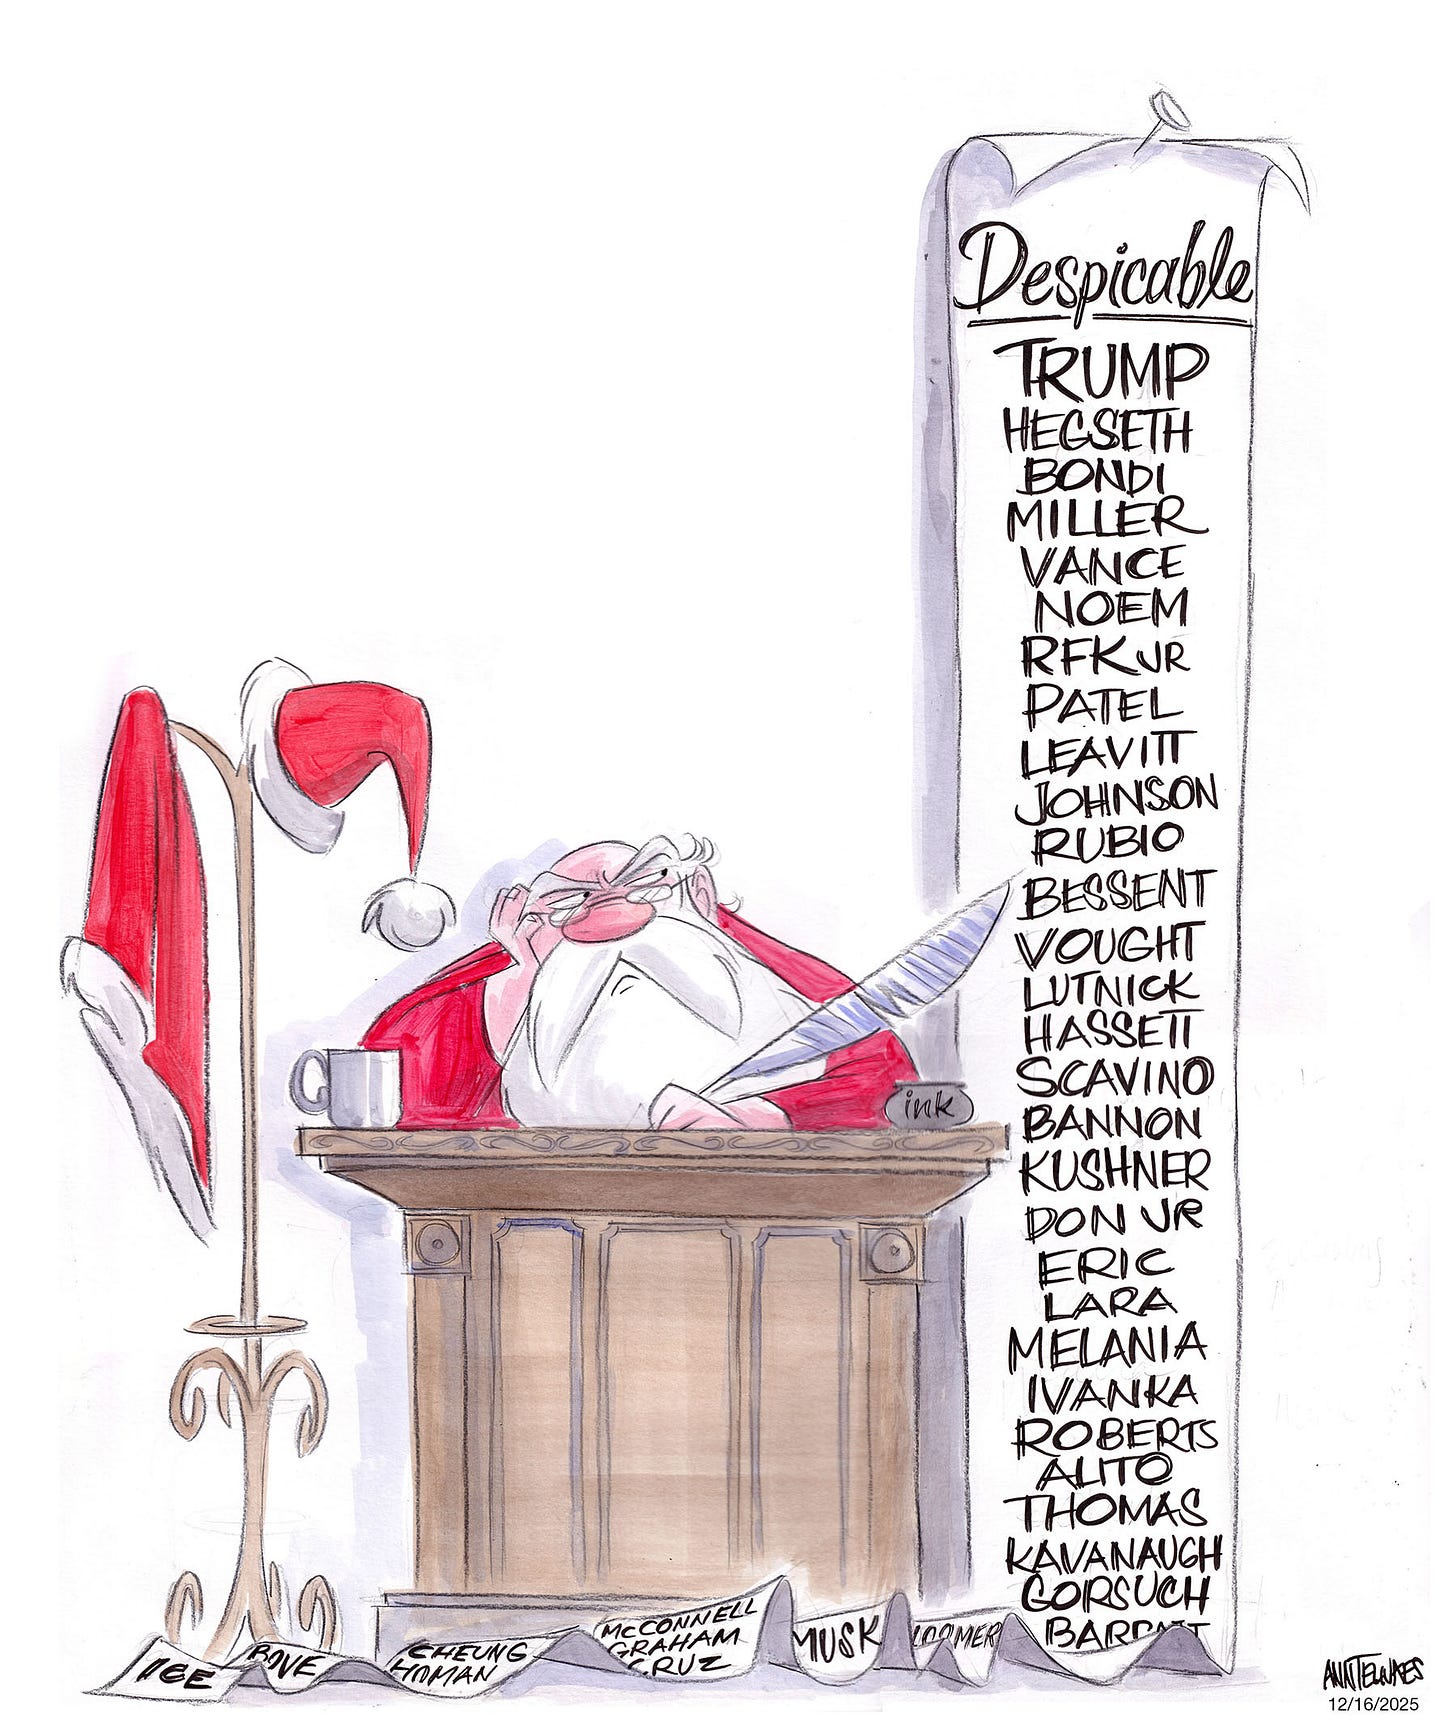 Despicable
TRUMP
HEGSETH
BONDI
MILLER
VANCE
NOEM
RFK JR
PATEL
LEAVITT
JOHNSON
RUBIO
BESSENT
VOUGHT
LUTNICK
HASSETT
SCAVINO
BANNON
KUSHNER
DON JR
ERIC
LARA
MELANIA
IVANKA
ROBERTS
ALITO
THOMAS
KAVANAUGH
GORSUCH
BARRETT
LOOMER
MUSK
MCCONNELL
GRAHAM
CRUZ
CHEUNG
HOMAN
BOVE
ICE
ink
ANN TELNAES
12/16/2025